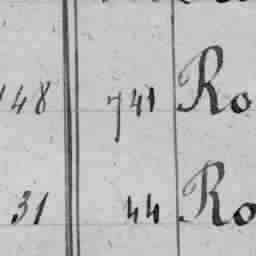 148 741 Ro
31 44 Ro